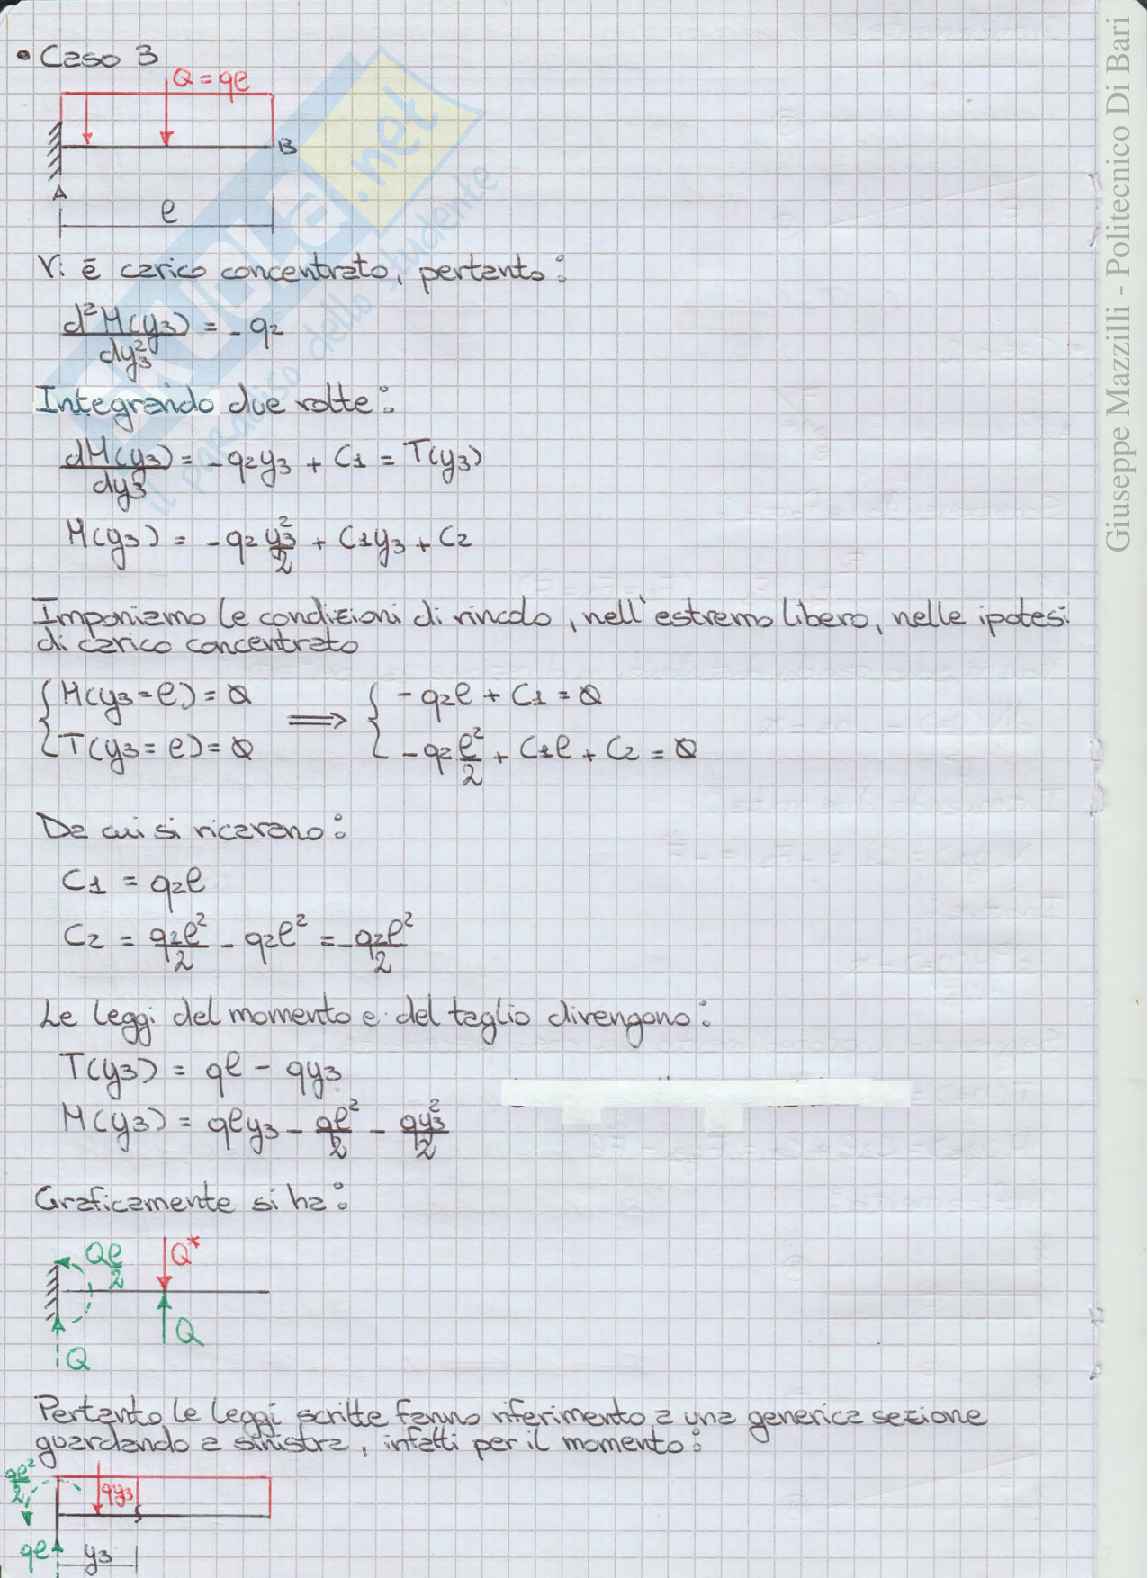 • Caso 3
Q = qℓ
B
A
ℓ
Vi è carico concentrato, pertanto:
d²M(y₃)/dy₃² = - q₂
Integrando due volte:
dM(y₃)/dy₃ = - q₂y₃ + C₁ = T(y₃)
M(y₃) = - q₂ y₃²/2 + C₁y₃ + C₂
Imponiamo le condizioni di vincolo, nell'estremo libero, nelle ipotesi
di carico concentrato
{ M(y₃=ℓ) = 0 ⟹ { - q₂ℓ + C₁ = 0
T(y₃=ℓ) = 0 - q₂ ℓ²/2 + C₁ℓ + C₂ = 0
Da cui si ricavano:
C₁ = q₂ℓ
C₂ = q₂ℓ²/2 - q₂ℓ² = - q₂ℓ²/2
Le leggi del momento e del taglio divengono:
T(y₃) = qℓ - qy₃
M(y₃) = qℓy₃ - qℓ²/2 - qy₃²/2
Graficamente si ha:
Qℓ/2
Q*
Q
Q
Pertanto le leggi scritte fanno riferimento a una generica sezione
guardando a sinistra, infatti per il momento:
qℓ²/2
qy₃
qℓ
y₃
Giuseppe Mazzilli - Politecnico Di Bari
SKUOLA.net
il paradiso dello studente